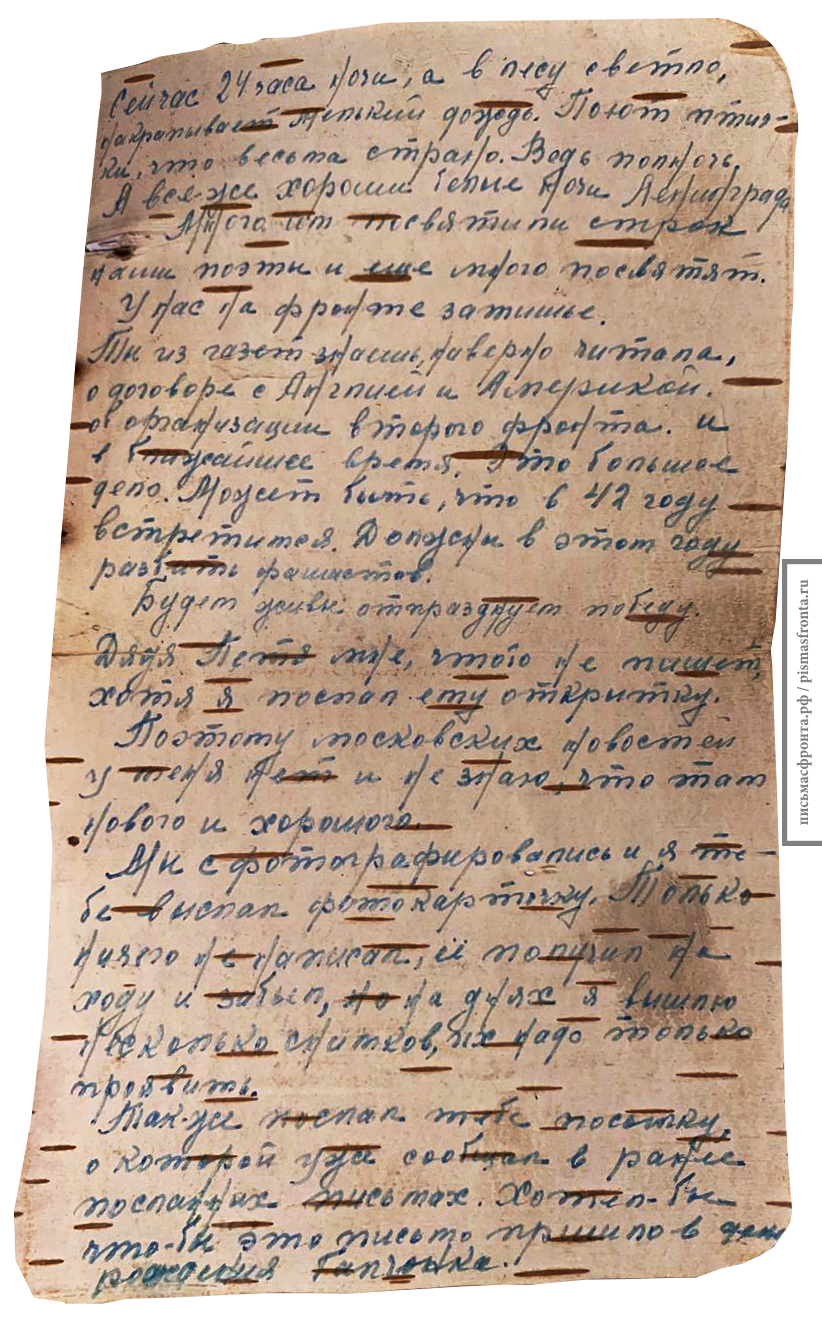 Сейчас 24 часа ночи, а в лесу светло,
накрапывает мелький дождь. Поют птич-
ки, что весьма странно. Ведь полночь.
А все-же хороши белые ночи Ленинграда
Много им посвятили строк
наши поэты и еще много посвятят.
У нас на фронте затишье.
Ты из газет знаешь, наверно читала,
о договоре с Англией и Америкой.
об организации второго фронта. и
в ближайшее время. Это большое
дело. Может быть, что в 42 году
встретимся. Должны в этом году
разбить фашистов.
Будем живы отпразднуем победу.
Дядя Петя мне, что-то не пишет,
хотя я послал ему открытку.
Поэтому московских новостей
у меня нет и не знаю, что там
нового и хорошого.
Мы сфотографировались и я те-
бе выслал фотокарточку. Только
ничего не написал, её получил на
ходу и забыл, но на днях я вышлю
несколько снитков, их надо только
проявить.
Так-же послал тебе посылку,
о которой уже сообщал в ранее
посланных письмах. Хотел-бы
что-бы это письмо пришло в день
рождения Галчонка.
письмасфронта.рф / pismasfronta.ru